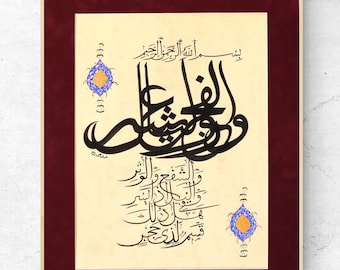 بِسْمِ اللهِ الرَّحْمٰنِ الرَّحِيمِ
والفجر وليال عشر
والشفع والوتر
والليل إذا يسر
هل في ذلك
قسم لذي حجر